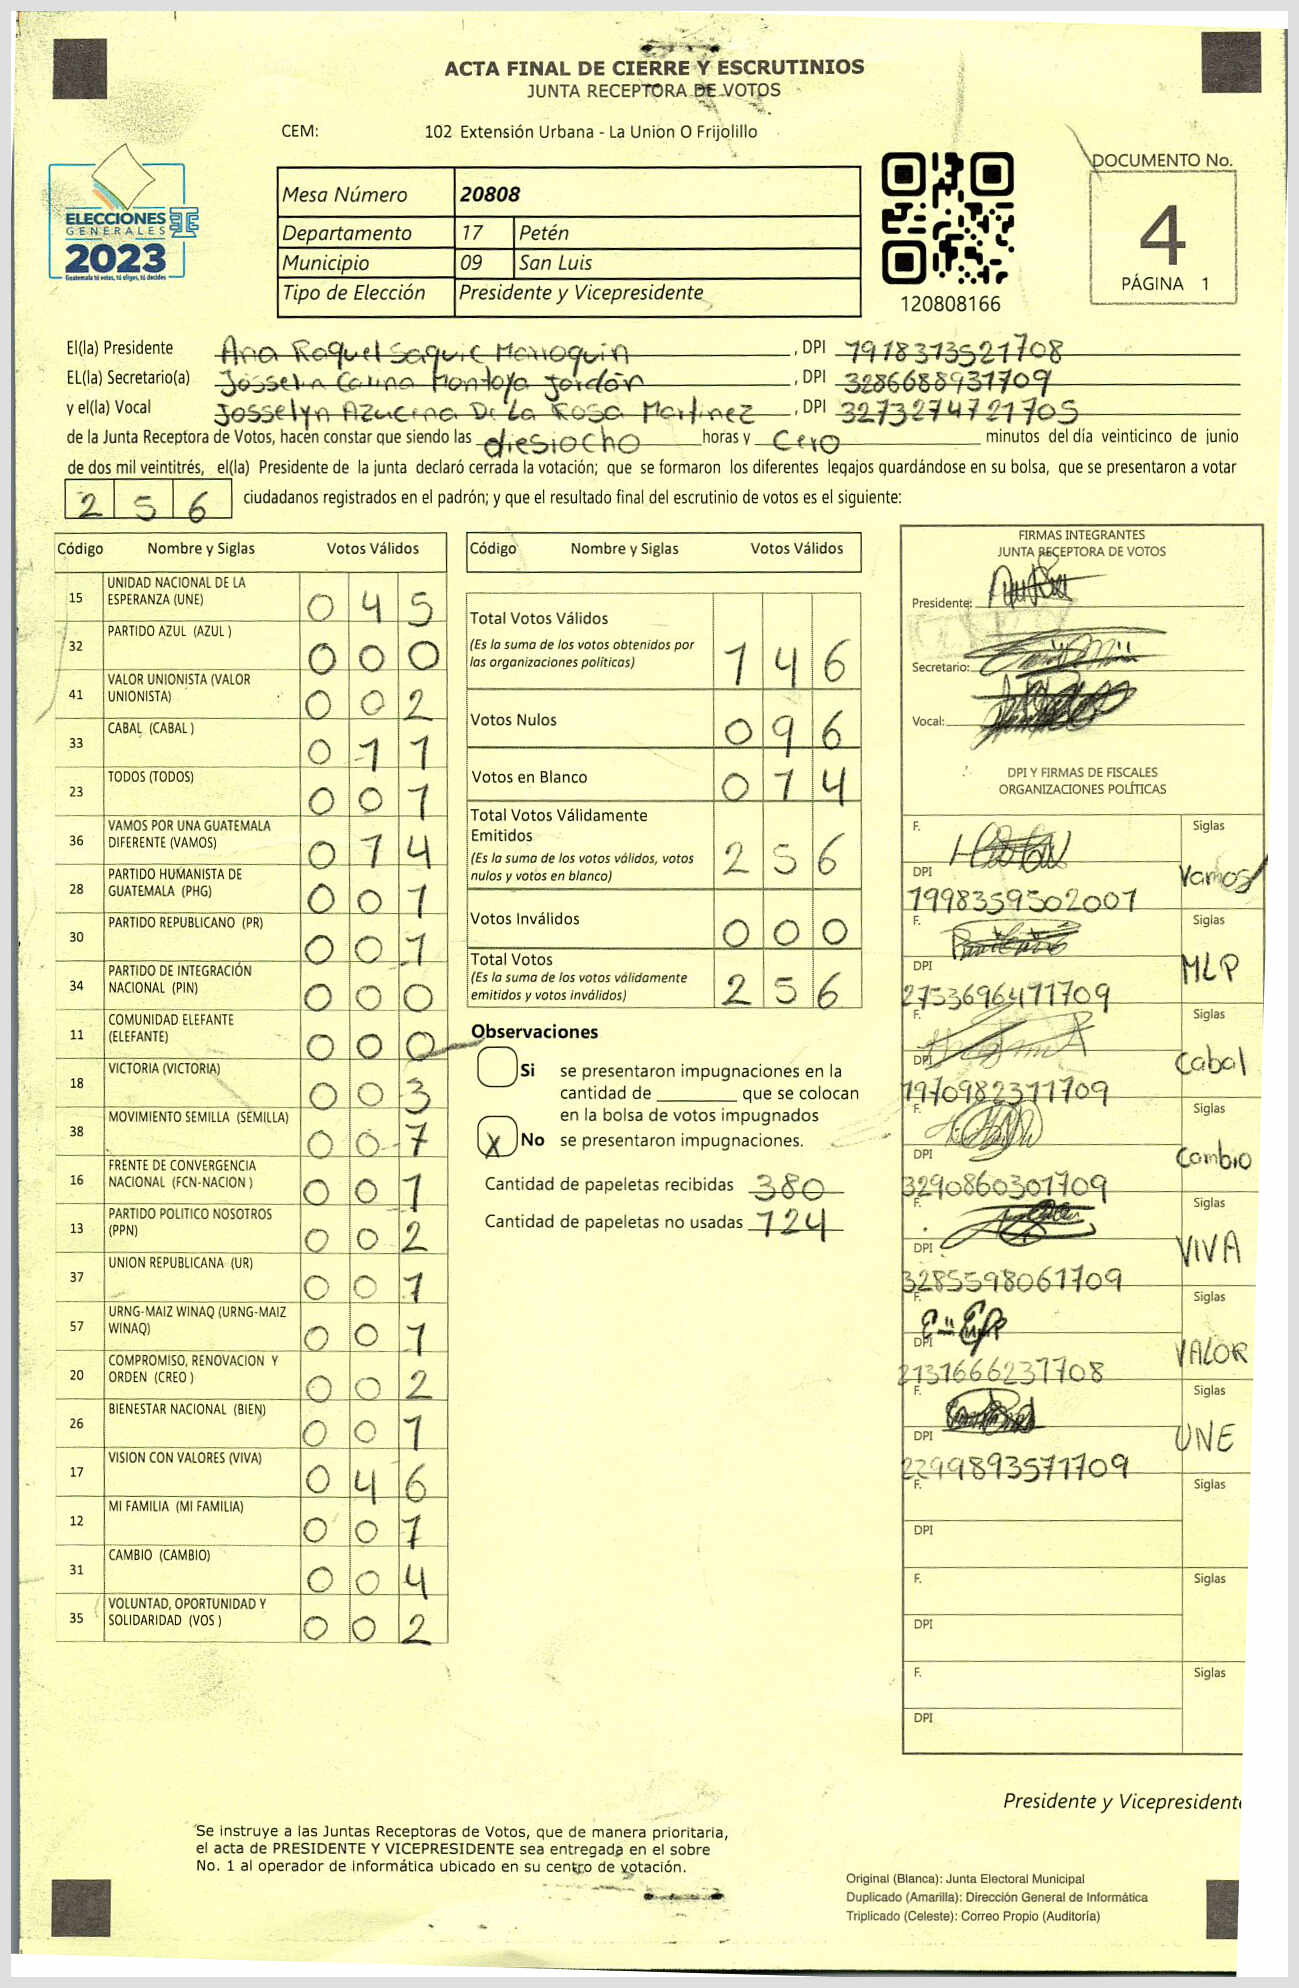 ACTA FINAL DE CIERRE Y ESCRUTINIOS
JUNTA RECEPTORA DE VOTOS
CEM: 102 Extensión Urbana - La Union O Frijolillo
DOCUMENTO No.
4
PÁGINA 1
ELECCIONES
GENERALES
2023
Guatemala tú votas, tú eliges, tú decides
Mesa Número 20808
Departamento 17 Petén
Municipio 09 San Luis
Tipo de Elección Presidente y Vicepresidente
120808166
El(la) Presidente Ana Raquel Saquic Marroquin , DPI 1918313521708
EL(la) Secretario(a) Josselin Montoya Jordón , DPI 3286688931709
y el(la) Vocal Josselyn Azucena De La Rosa Martinez , DPI 3273274721705
de la Junta Receptora de Votos, hacen constar que siendo las diesiocho horas y Cero minutos del día veinticinco de junio
de dos mil veintitrés, el(la) Presidente de la junta declaró cerrada la votación; que se formaron los diferentes legajos guardándose en su bolsa, que se presentaron a votar
2 5 6 ciudadanos registrados en el padrón; y que el resultado final del escrutinio de votos es el siguiente:
Código Nombre y Siglas Votos Válidos
15 UNIDAD NACIONAL DE LA ESPERANZA (UNE) 0 4 5
32 PARTIDO AZUL (AZUL ) 0 0 0
41 VALOR UNIONISTA (VALOR UNIONISTA) 0 0 2
33 CABAL (CABAL ) 0 1 1
23 TODOS (TODOS) 0 0 1
36 VAMOS POR UNA GUATEMALA DIFERENTE (VAMOS) 0 1 4
28 PARTIDO HUMANISTA DE GUATEMALA (PHG) 0 0 1
30 PARTIDO REPUBLICANO (PR) 0 0 1
34 PARTIDO DE INTEGRACIÓN NACIONAL (PIN) 0 0 0
11 COMUNIDAD ELEFANTE (ELEFANTE) 0 0 0
18 VICTORIA (VICTORIA) 0 0 3
38 MOVIMIENTO SEMILLA (SEMILLA) 0 0 7
16 FRENTE DE CONVERGENCIA NACIONAL (FCN-NACION ) 0 0 1
13 PARTIDO POLITICO NOSOTROS (PPN) 0 0 2
37 UNION REPUBLICANA (UR) 0 0 1
57 URNG-MAIZ WINAQ (URNG-MAIZ WINAQ) 0 0 1
20 COMPROMISO, RENOVACION Y ORDEN (CREO ) 0 0 2
26 BIENESTAR NACIONAL (BIEN) 0 0 1
17 VISION CON VALORES (VIVA) 0 4 6
12 MI FAMILIA (MI FAMILIA) 0 0 1
31 CAMBIO (CAMBIO) 0 0 4
35 VOLUNTAD, OPORTUNIDAD Y SOLIDARIDAD (VOS ) 0 0 2
Código Nombre y Siglas Votos Válidos
Total Votos Válidos
(Es la suma de los votos obtenidos por
las organizaciones políticas) 1 4 6
Votos Nulos 0 9 6
Votos en Blanco 0 1 4
Total Votos Válidamente
Emitidos
(Es la suma de los votos válidos, votos
nulos y votos en blanco) 2 5 6
Votos Inválidos 0 0 0
Total Votos
(Es la suma de los votos válidamente
emitidos y votos inválidos) 2 5 6
Observaciones
Si se presentaron impugnaciones en la
cantidad de ________ que se colocan
en la bolsa de votos impugnados
X No se presentaron impugnaciones.
Cantidad de papeletas recibidas 380
Cantidad de papeletas no usadas 124
FIRMAS INTEGRANTES
JUNTA RECEPTORA DE VOTOS
Presidente:
Secretario:
Vocal:
DPI Y FIRMAS DE FISCALES
ORGANIZACIONES POLÍTICAS
F. Siglas
DPI Vamos
1998359502001
F. Siglas
DPI MLP
2753696471709
F. Siglas
DPI Cabal
1970982311709
F. Siglas
DPI Cambio
3290860301709
F. Siglas
DPI VIVA
3285598061709
F. Siglas
DPI VALOR
2131666231708
F. Siglas
DPI UNE
2299893571709
F. Siglas
DPI
F. Siglas
DPI
F. Siglas
DPI
Presidente y Vicepresident
Se instruye a las Juntas Receptoras de Votos, que de manera prioritaria,
el acta de PRESIDENTE Y VICEPRESIDENTE sea entregada en el sobre
No. 1 al operador de informática ubicado en su centro de votación.
Original (Blanca): Junta Electoral Municipal
Duplicado (Amarilla): Dirección General de Informática
Triplicado (Celeste): Correo Propio (Auditoría)